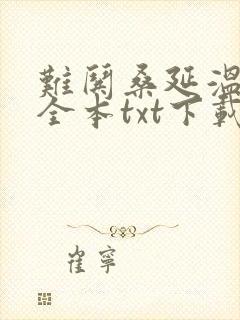 難鬨桑延溫
全本txt下載
崔寧